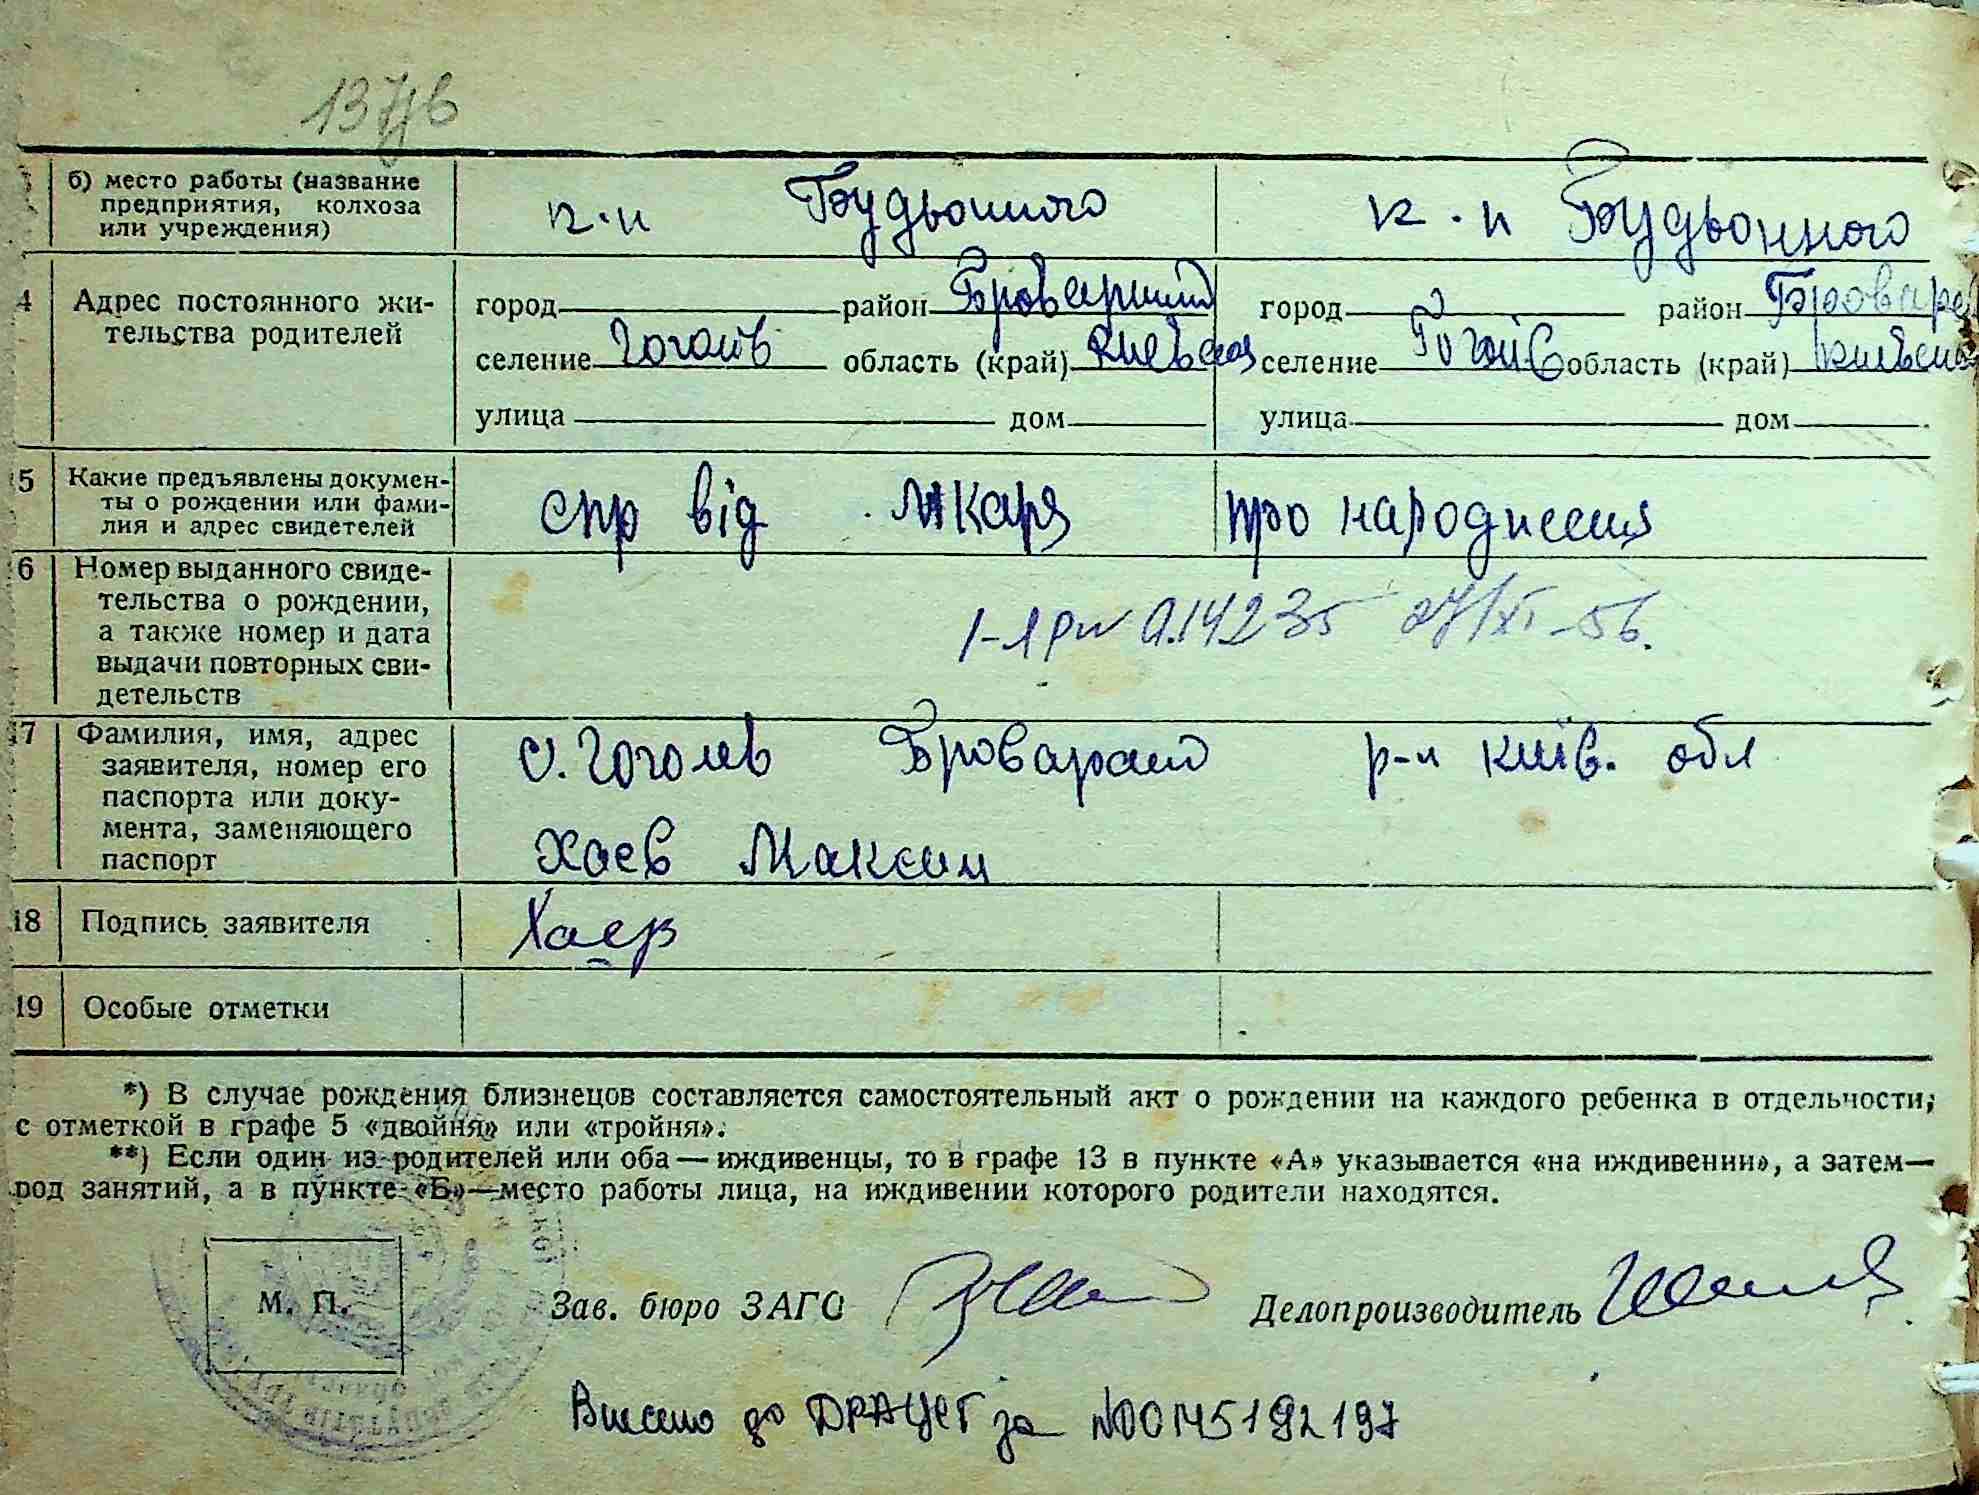 137/в
б) место работы (название
предприятия, колхоза
или учреждения)
к-п Будьонного к-п Будьонного
4 Адрес постоянного жи-
тельства родителей
город район Броварський город район Бровар
селение Гоголів область (край) Киевская селение область (край) Киевска
улица дом улица дом
5 Какие предъявлены докумен-
ты о рождении или фами-
лия и адрес свидетелей
спр від лікаря про народження
6 Номер выданного свиде-
тельства о рождении,
а также номер и дата
выдачи повторных сви-
детельств
14235 27/XI-56.
17 Фамилия, имя, адрес
заявителя, номер его
паспорта или доку-
мента, заменяющего
паспорт
с. Гоголев р-н київ. обл
Хаев Максим
18 Подпись заявителя
Хаев
19 Особые отметки
*) В случае рождения близнецов составляется самостоятельный акт о рождении на каждого ребенка в отдельности,
с отметкой в графе 5 «двойня» или «тройня».
**) Если один из родителей или оба — иждивенцы, то в графе 13 в пункте «А» указывается «на иждивении», а затем—
род занятий, а в пункте «Б»—место работы лица, на иждивении которого родители находятся.
М. П.
Зав. бюро ЗАГС Делопроизводитель
Внесено до ДРАЦСГ за №00145192197